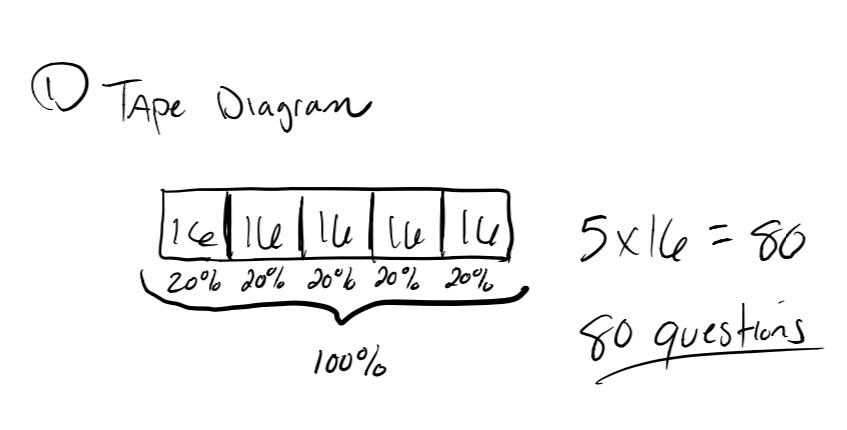 ① Tape Diagram
16 16 16 16 16
5x16 = 80
20% 20% 20% 20% 20%
100%
80 questions